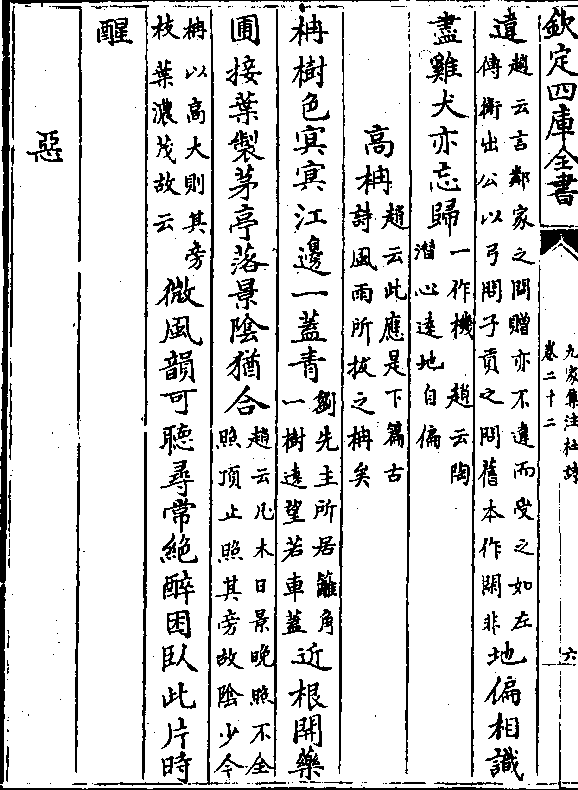 欽定四庫全書
九家集注杜詩
卷二十二
六
違趙云言鄰家之問贈亦不違而受之如左
傳衛出公以弓問子貢之問舊本作閑非地偏相識
盡雞犬亦忘歸一作機 趙云陶
潛心遠地自偏
高柟趙云此應是下篇古
詩風雨所拔之柟矣
柟樹色㝠㝠江邊一蓋青劉先主所居籬角
一樹遠望若車蓋近根開藥
圃接葉製茅亭落景陰猶合趙云凡木日景晚照不全
照頂止照其旁故陰少今
柟以高大則其旁
枝葉濃茂故云微風韻可聽尋常絶醉困臥此片時
醒
惡